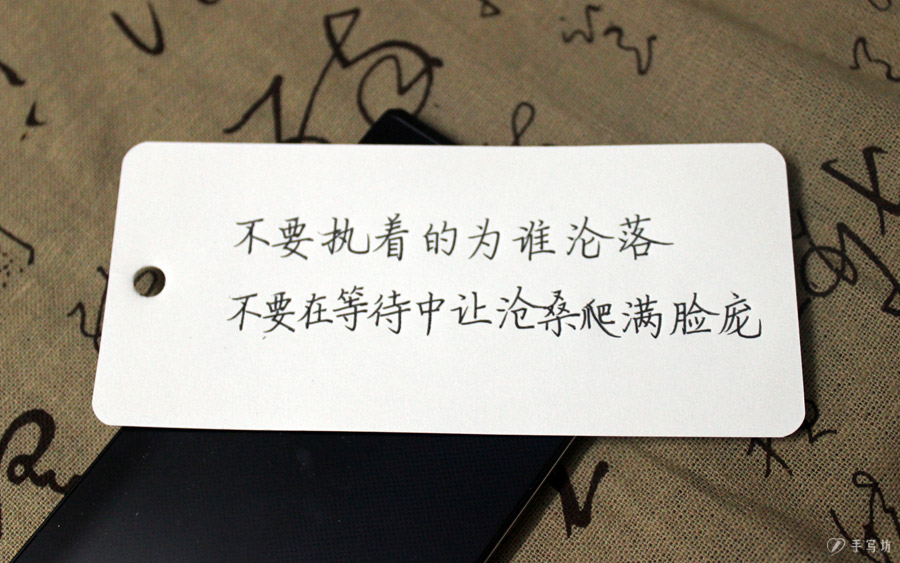 不要执着的为谁沦落
不要在等待中让沧桑爬满脸庞
手写坊